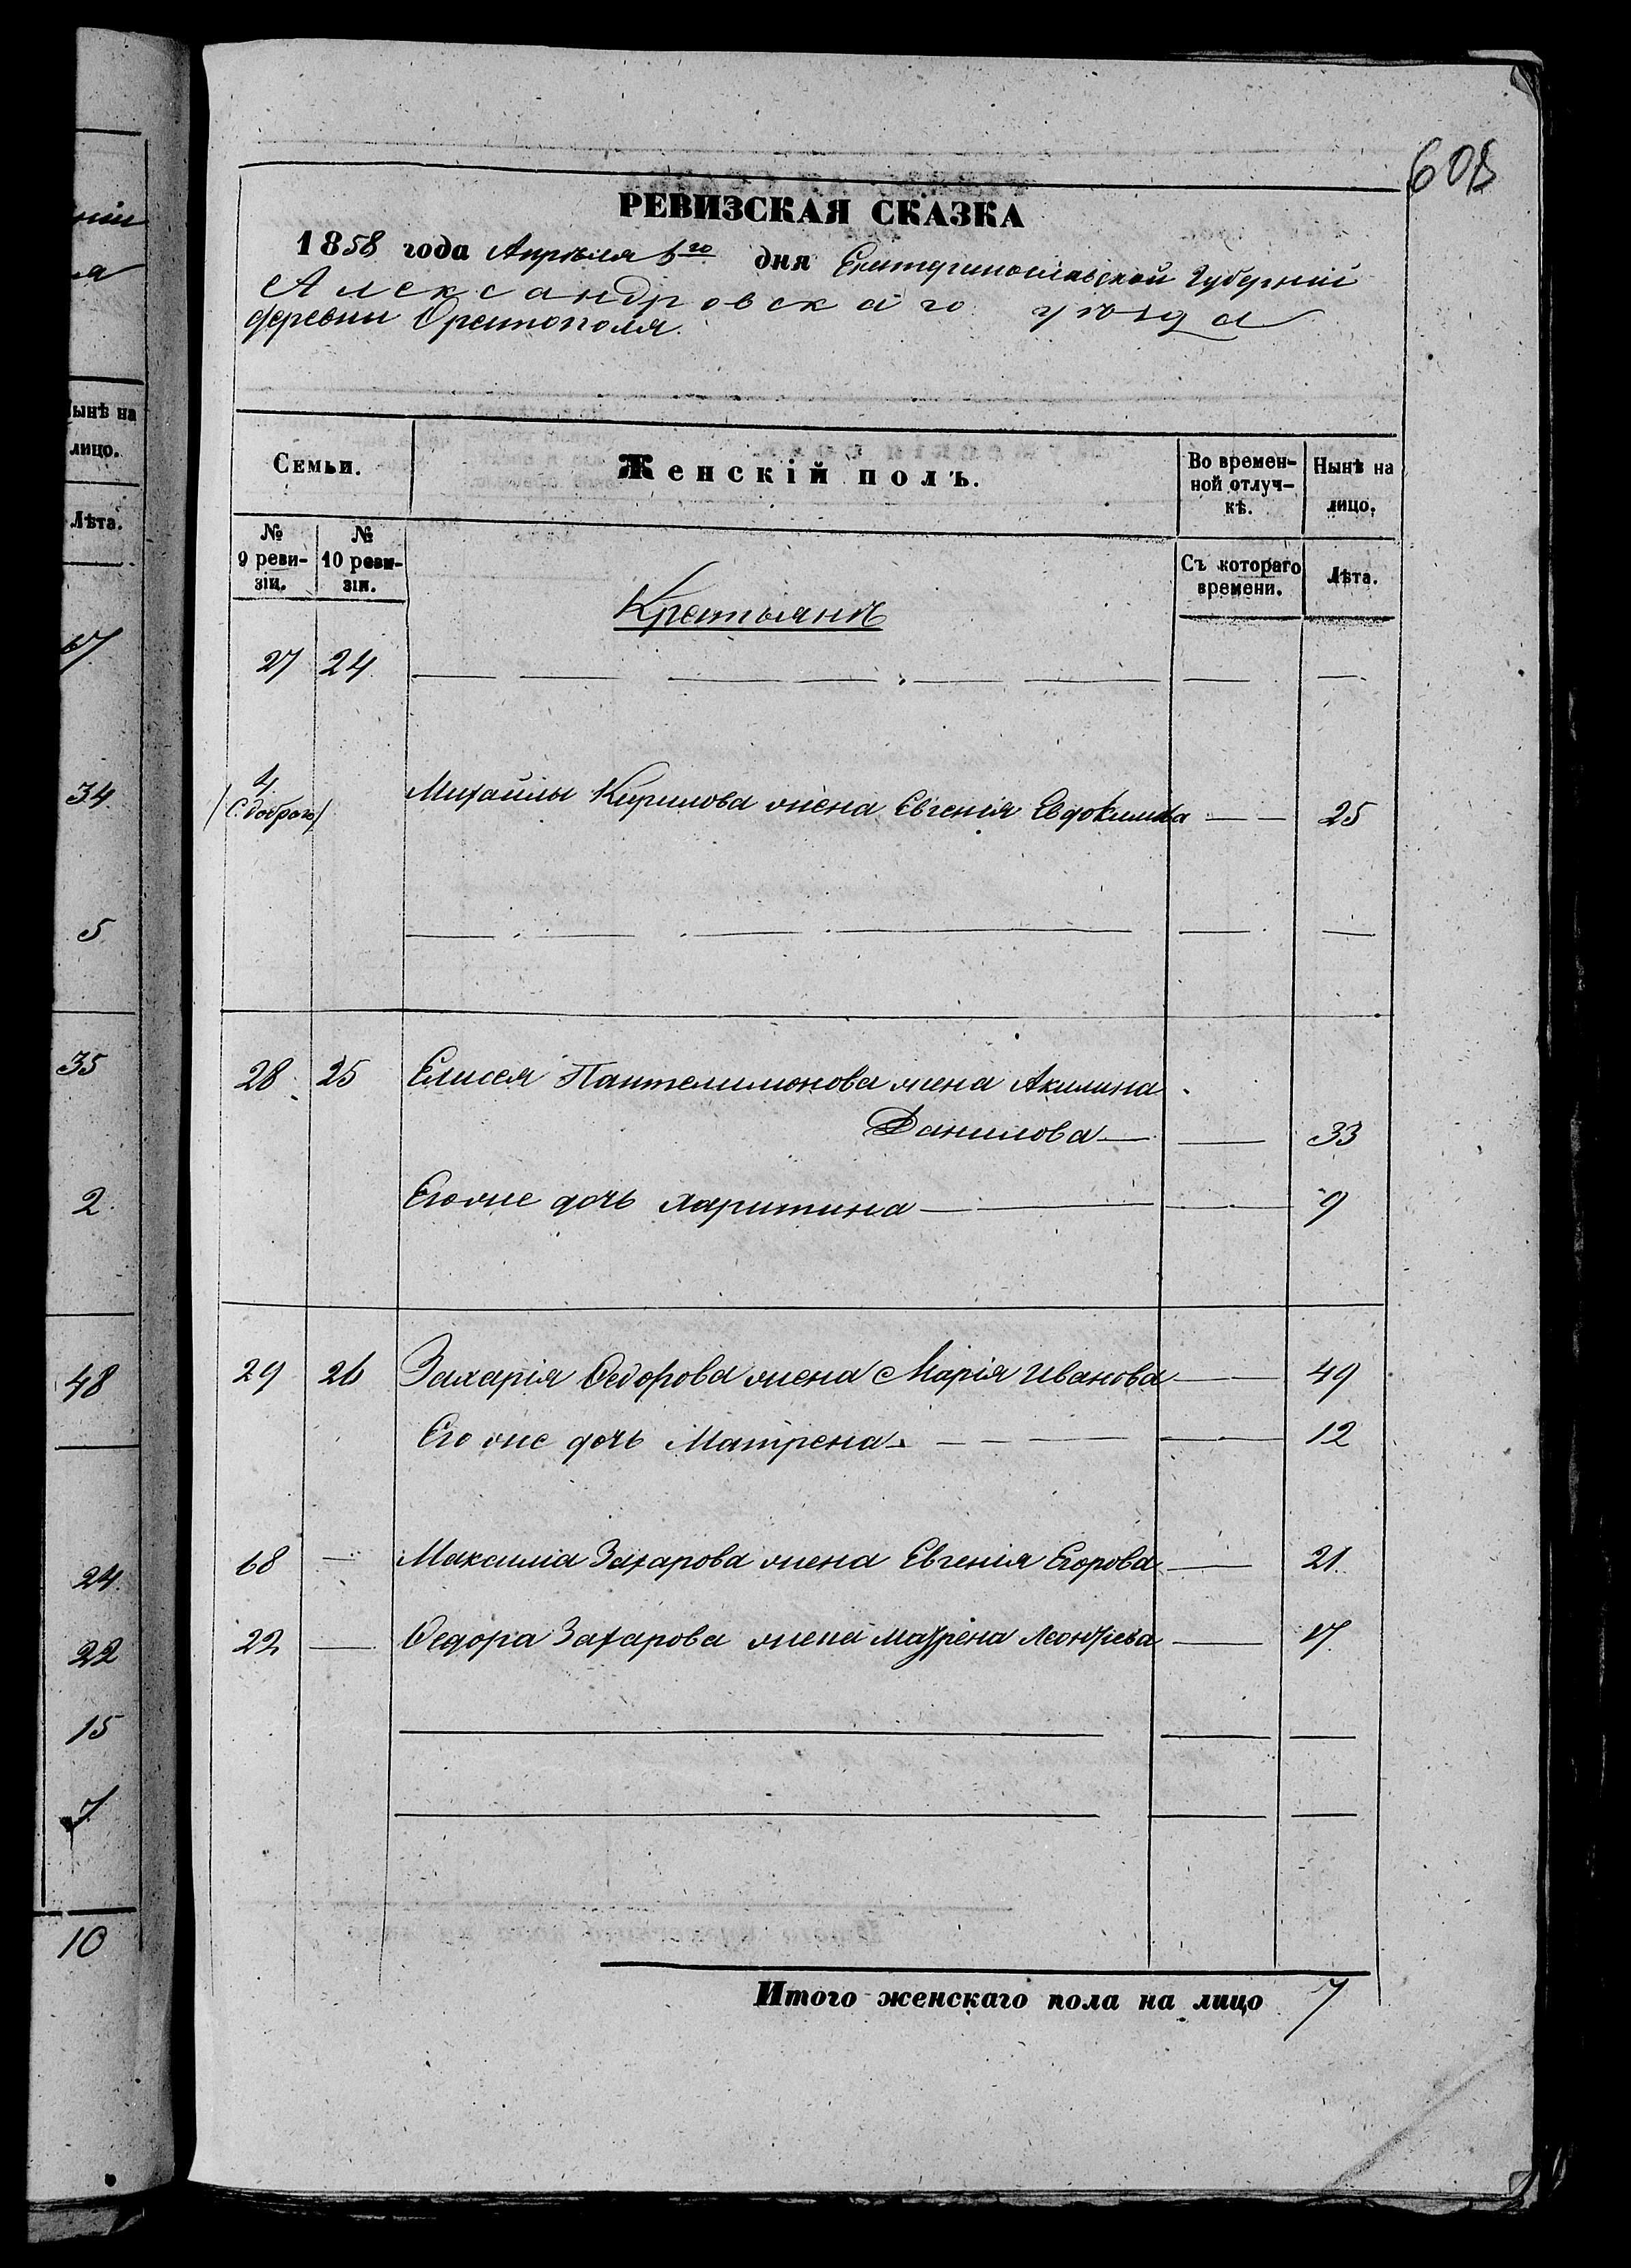 608
РЕВИЗСКАЯ СКАЗКА
1858 года Апреля 6го дня Екатеринославской Губерніи
Александровскаго уѣзда
деревни Орестополя.
Семьи. Женскій полъ. Во времен- Нынѣ на
ной отлуч- лицо.
кѣ.
№ № Съ котораго Лѣта.
9 реви- 10 реви- времени.
зіи. зіи.
Крестьянъ
27 24
4 Михайлы Кирилова жена Евгенія Евдокимова 25
/С. Доброго/
28 25 Елисея Пантелимонова жена Акилина
Данилова 33
Его же дочь Харитина 9
29 26 Захарія Ѳедорова жена Марія Иванова 49
Его же дочь Матрена 12
68 Максима Захарова жена Евгенія Егорова 21
22 Ѳедора Захарова жена Матрена Леонтіева 17
Итого женскаго пола на лицо 7
ніи
а
ынѣ на
лицо.
Лѣта.
34
5
35
2
48
24
22
15
7
10